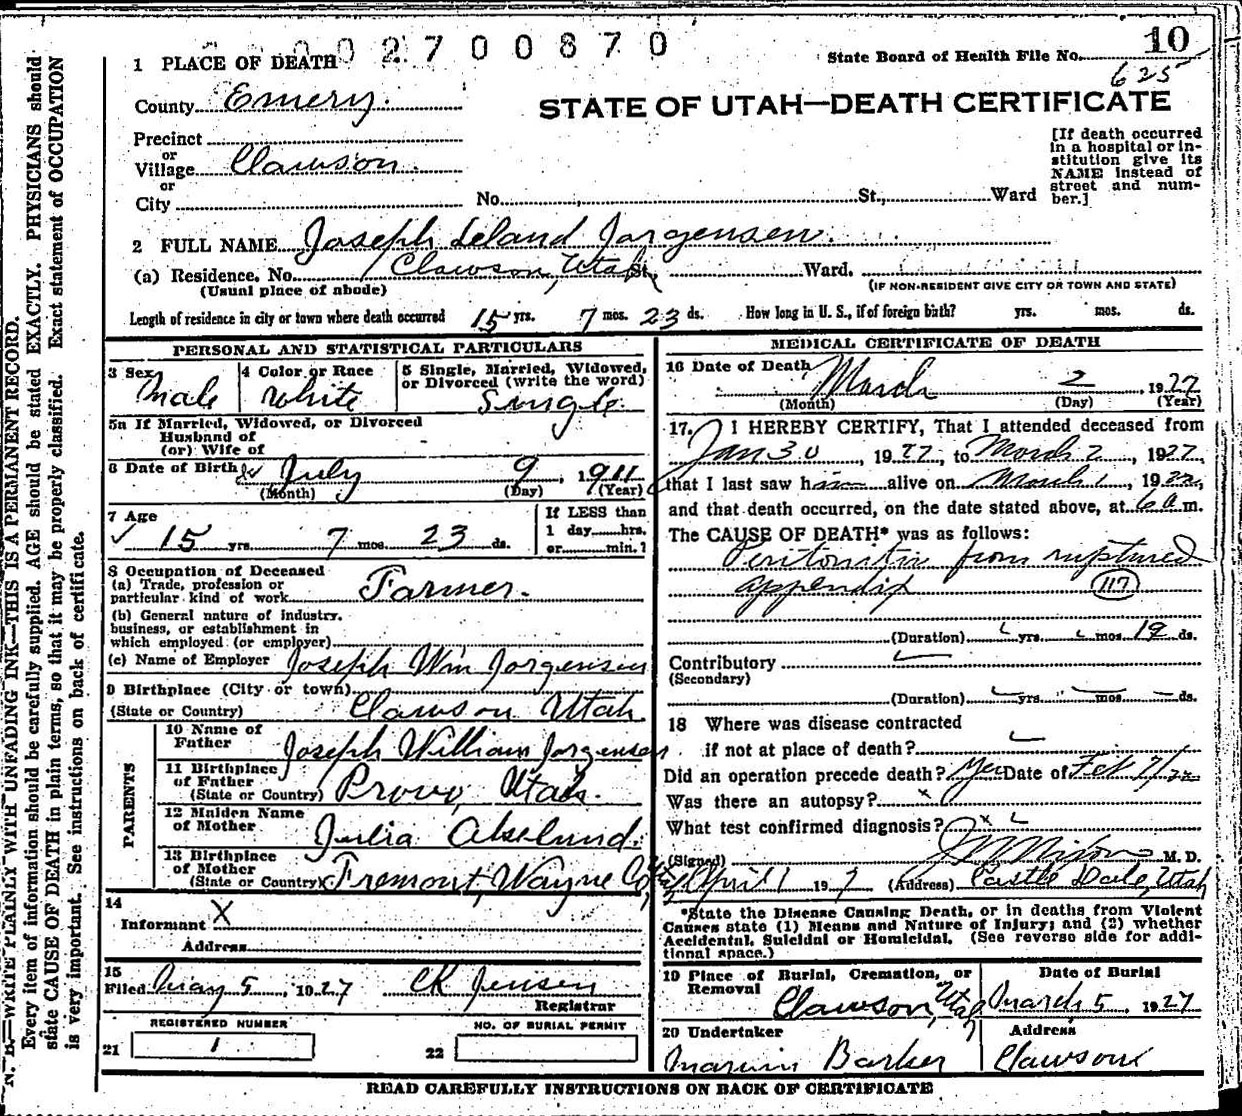 002700870
State Board of Health File No. 10
625
1 PLACE OF DEATH
County Emery.
STATE OF UTAH—DEATH CERTIFICATE
Precinct
or
Village Clawson
or
City
No. St., Ward
[If death occurred
in a hospital or in-
stitution give its
NAME instead of
street and num-
ber.]
2 FULL NAME Joseph Leland Jorgensen.
(a) Residence, No. Clawson, Utah St, Ward.
(Usual place of abode)
(IF NON-RESIDENT GIVE CITY OR TOWN AND STATE)
Length of residence in city or town where death occurred 15 yrs. 7 mos. 23 ds. How long in U. S., if of foreign birth? yrs. mos. ds.
PERSONAL AND STATISTICAL PARTICULARS
3 Sex Male
4 Color or Race White
5 Single, Married, Widowed,
or Divorced (write the word)
Single.
5a If Married, Widowed, or Divorced
Husband of
(or) Wife of
6 Date of Birth July 9, 1911
(Month) (Day) (Year)
7 Age
15 yrs. 7 mos 23 ds.
If LESS than
1 day hrs.
or min.?
8 Occupation of Deceased
(a) Trade, profession or
particular kind of work Farmer.
(b) General nature of industry,
business, or establishment in
which employed (or employer)
(c) Name of Employer Joseph Wm Jorgensen
9 Birthplace (City or town)
(State or Country) Clawson Utah.
PARENTS
10 Name of
Father Joseph William Jorgensen
11 Birthplace
of Father
(State or Country) Provo, Utah.
12 Maiden Name
of Mother Julia Akelund.
13 Birthplace
of Mother
(State or Country) Fremont, Wayne Co,
14
Informant X
Address
15
Filed May 5, 1927 CK Jensen
Registrar
REGISTERED NUMBER
21 1
NO. OF BURIAL PERMIT
22
MEDICAL CERTIFICATE OF DEATH
16 Date of Death March 2, 1927
(Month) (Day) (Year)
17. I HEREBY CERTIFY, That I attended deceased from
Jan 30, 1927, to March 2, 1927,
that I last saw him alive on March 1, 1927,
and that death occurred, on the date stated above, at 6 a m.
The CAUSE OF DEATH* was as follows:
Peritonitis from ruptured
appendix 117
(Duration) yrs. mos. 19 ds.
Contributory
(Secondary)
(Duration) yrs. mos. ds.
18 Where was disease contracted
if not at place of death?
Did an operation precede death? Yes Date of Feb
Was there an autopsy? x
What test confirmed diagnosis? x
(Signed) J M Nixon M. D.
April 1 1927 (Address) Castle Dale, Utah
*State the Disease Causing Death, or in deaths from Violent
Causes state (1) Means and Nature of Injury; and (2) whether
Accidental, Suicidal or Homicidal. (See reverse side for addi-
tional space.)
19 Place of Burial, Cremation, or
Removal
Clawson, Utah
Date of Burial
March 5 1927
20 Undertaker
Marvin Barker
Address
Clawson
READ CAREFULLY INSTRUCTIONS ON BACK OF CERTIFICATE
N. B.—WRITE PLAINLY WITH UNFADING INK—THIS IS A PERMANENT RECORD.
Every item of information should be carefully supplied. AGE should be stated EXACTLY. PHYSICIANS should
state CAUSE OF DEATH in plain terms, so that it may be properly classified. Exact statement of OCCUPATION
is very important. See instructions on back of certificate.